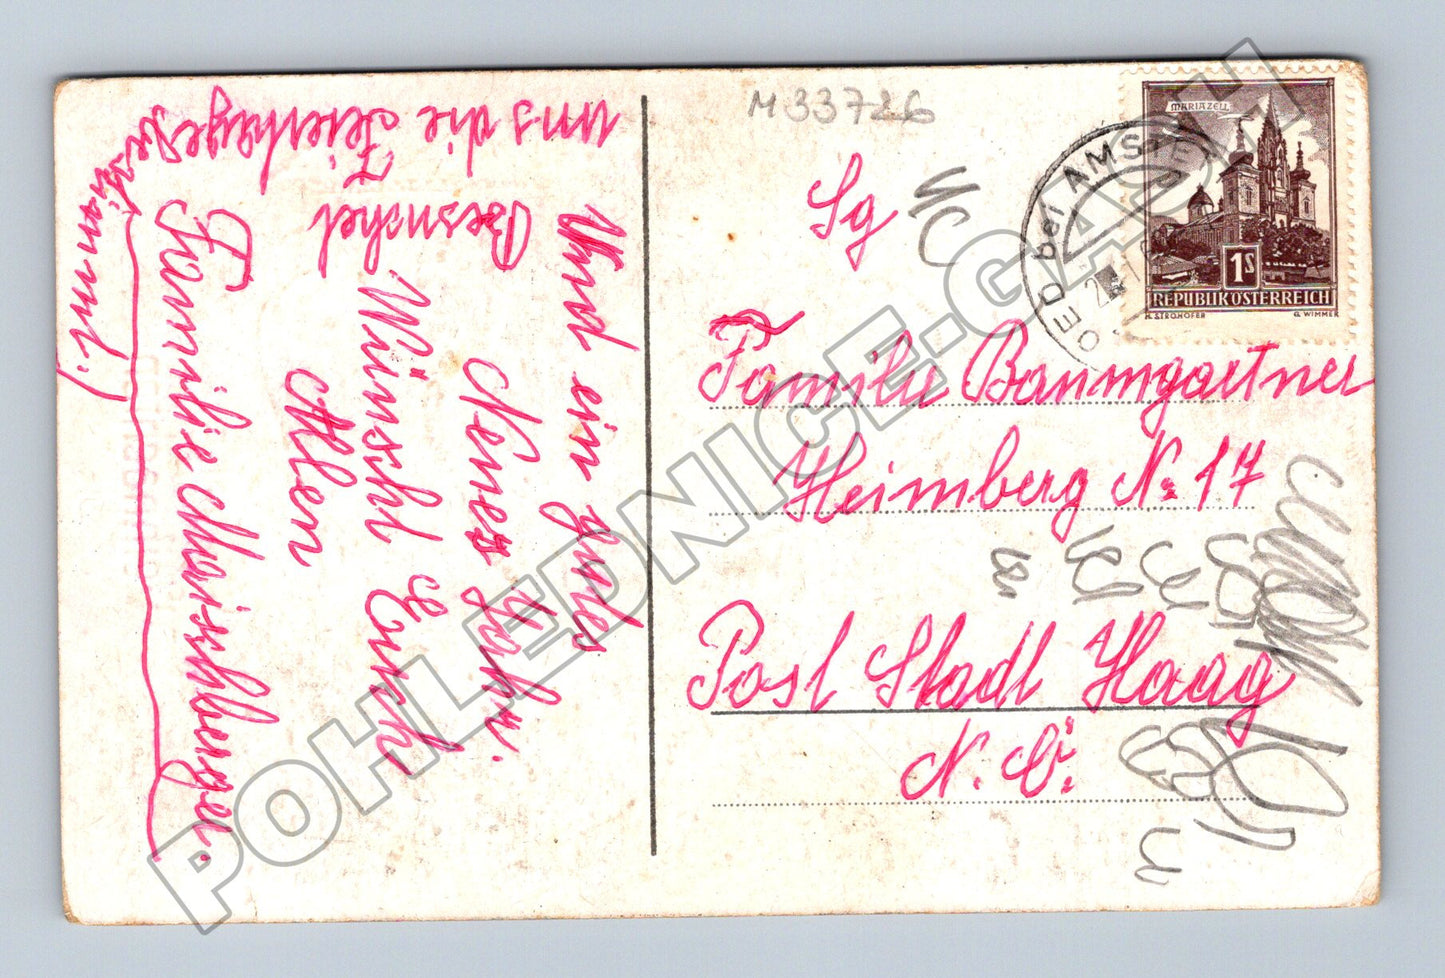 Und ein gutes
Neues Jahr.
Wünscht Euch
Allen
Familie Maischberger.
Besuchet
uns die Feiertage
kommt.)
M 33726
Sg
Familie Baumgartner
Heimberg No 17
Post Stadt Haag
N. Ö.
OED bei AMST
MARIAZELL
1S
REPUBLIK ÖSTERREICH
H. STROHOFER G. WIMMER
POHLEDNICE.GASH.CZ